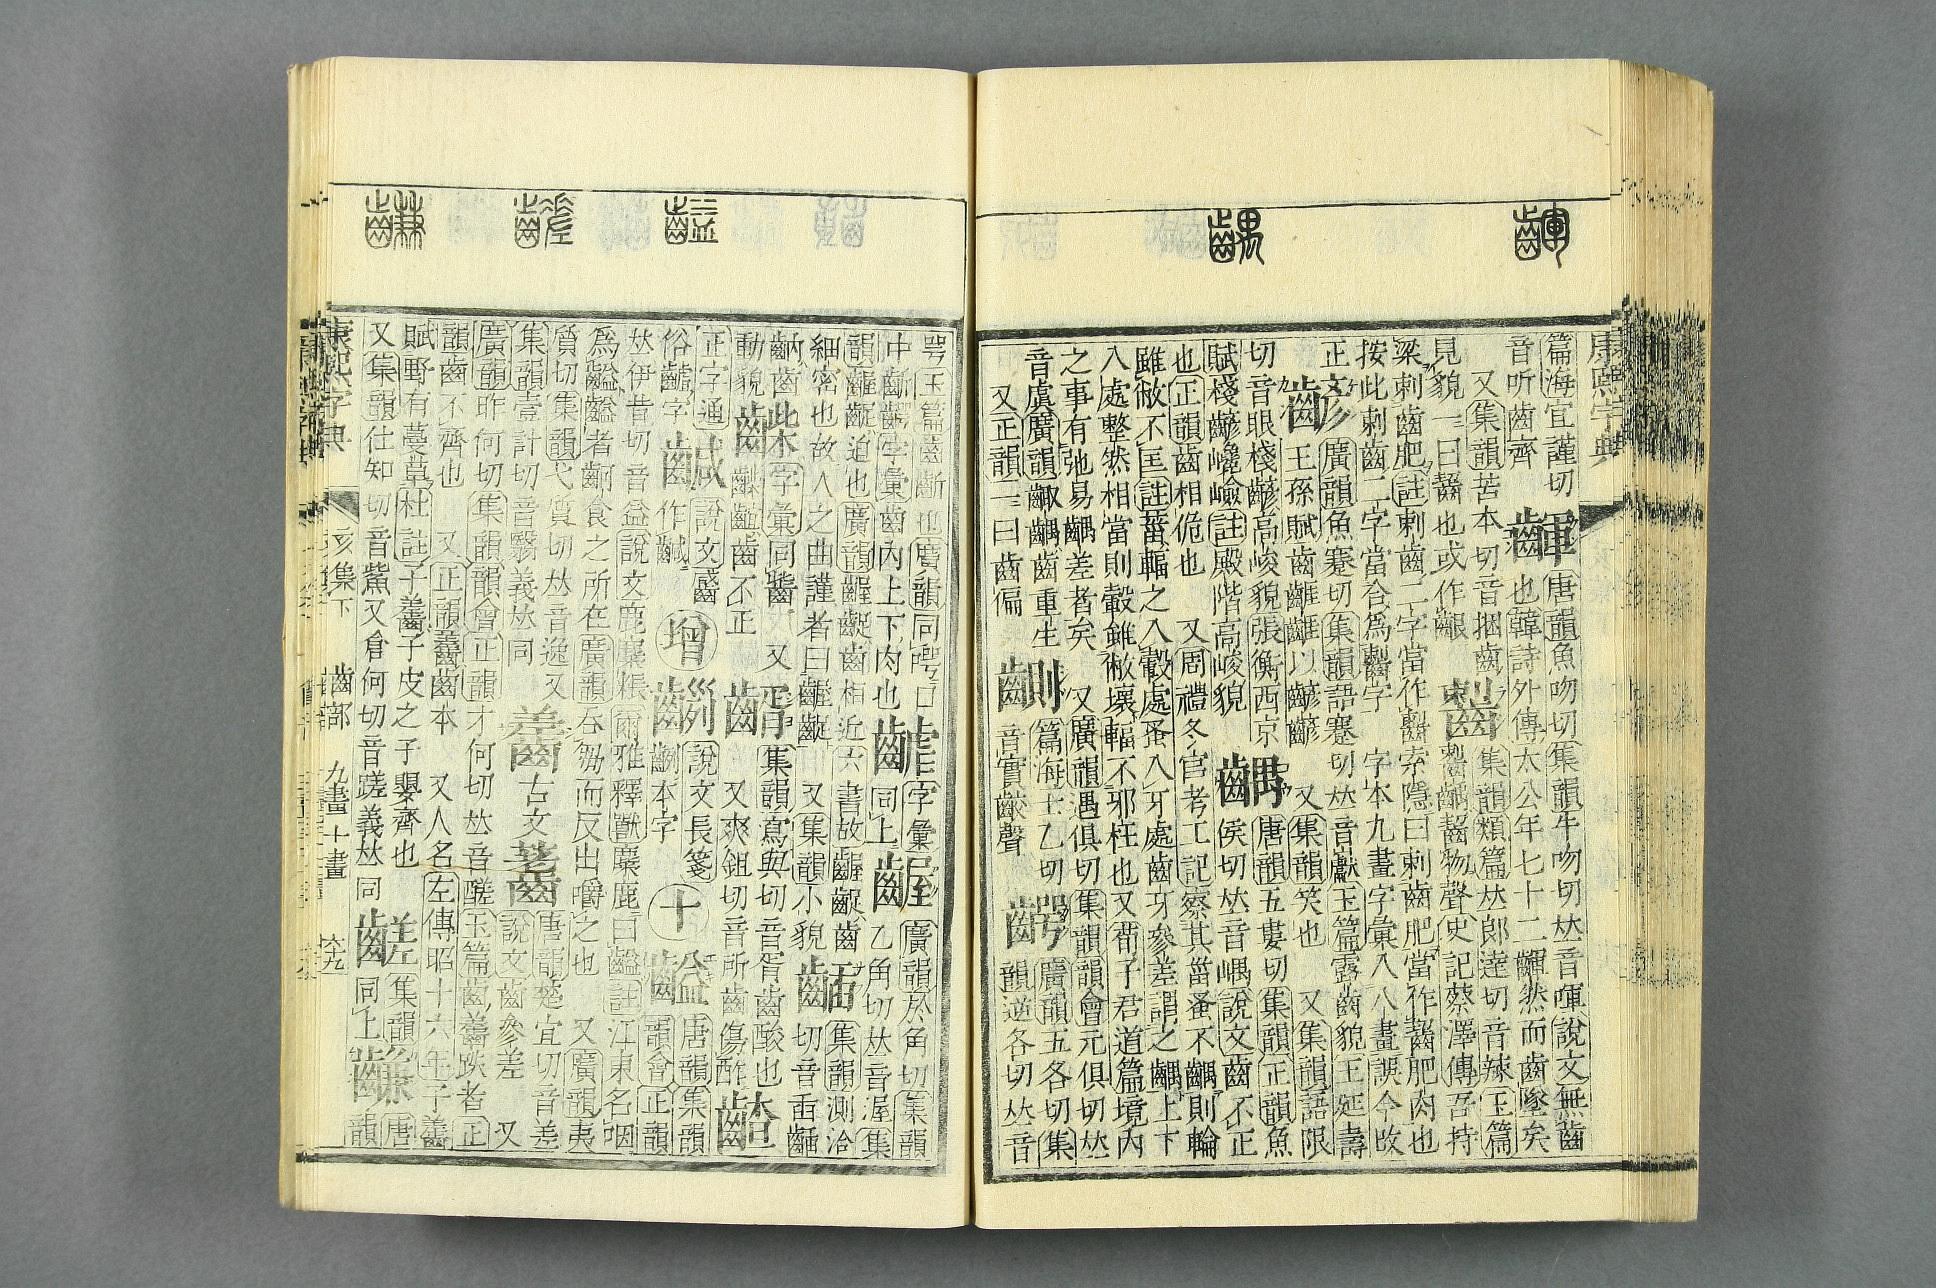 康熙字典
篇海宜謹切
音听齒齊
齳
唐韻魚吻切集韻牛吻切𠀤音喗說文無齒
也韓詩外傳太公年七十二齳然而齒墜矣
又集韻苦本切音捆齒
見貌一曰齰也或作齦
集韻類篇𠀤郎達切音辣玉篇
齧物聲史記蔡澤傳吾持
梁刺齒肥註刺齒二字當作齧索隱曰刺齒肥當作齧肥肉也
按此刺齒二字當合為齧字 字本九畫字彙入八畫誤今改
正
齴
廣韻魚蹇切集韻語蹇切𠀤音巘玉篇露齒貌王延壽
王孫賦齒以齴齴 又集韻笑也 又集韻語限
切音眼棧齴高峻貌張衡西京
賦棧齴巉嶮註殿階高峻貌
齵
唐韻五婁切集韻正韻魚
侯切𠀤音嵎說文齒不正
也正韻齒相佹也 又周禮冬官考工記察其菑蚤不齵則輪
雖敝不匡註菑輻之入轂處蚤入牙處齒牙參差謂之齵上下
入處整然相當則轂雖敝壞輻不邪枉也又荀子君道篇境內
之事有弛易齵差者矣 又廣韻遇俱切集韻韻會元俱切𠀤
音虞廣韻齱齵齒重生
又正韻一曰齒偏
篇海士乙切
音實齩聲
齶
廣韻五各切集
韻逆各切𠀤音
咢玉篇齒齗也廣韻同口
中齗齶字彙齒內上下肉也
字彙
同上
齷
廣韻於角切集韻
乙角切𠀤音渥集
韻齷齪迫也廣韻齷齪齒相近六書故齷齪齒
細密也故人之曲謹者曰齷齪 又集韻小貌
集韻測洽
切音臿
字彙同
動貌
齒不正
集韻寫與切音胥齒酸也
又爽鉏切音所齒傷酢
正字通
俗字
鹹
說文
作
增
說文長箋
本字
十
齸
唐韻集韻
韻會正韻
𠀤伊昔切音益說文鹿麋粻爾雅釋獸麋鹿曰齸註江東名咽
為齸齸者齝食之所在廣韻吞芻而反出嚼之也 又廣韻夷
質切集韻弋質切𠀤音逸又
集韻壹計切音翳義𠀤同
齹
古文
唐韻楚宜切音差
說文齒參差 又
廣韻昨何切集韻韻會正韻才何切𠀤音醝玉篇齒齹跌者正
韻齒不齊也 又正韻齹齒本 又人名左傳昭十六年子齹
賦野有蔓草杜註子齹子皮之子嬰齊也
又集韻仕知切音觜又倉何切音蹉義𠀤同
同上
唐
韻
康熙字典
亥集下
齒部
九畫十畫